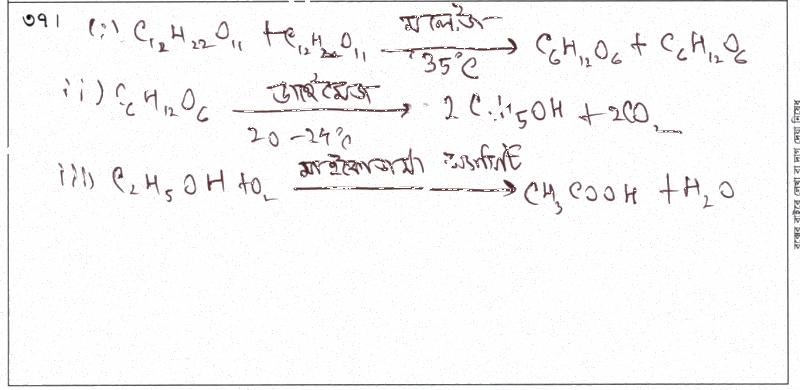 ৩৭। (i) C₁₂H₂₂O₁₁ + C₁₂H₂₂O₁₁ মলটেজ 35°C → C₆H₁₂O₆ + C₆H₁₂O₆
ii) C₆H₁₂O₆ জাইমেজ 20-24°C → 2C₂H₅OH + 2CO₂
iii) C₂H₅OH + O₂ মাইকোডার্মা → CH₃COOH + H₂O
বক্সের বাইরে লেখা বা দাগ দেয়া নিষেধ